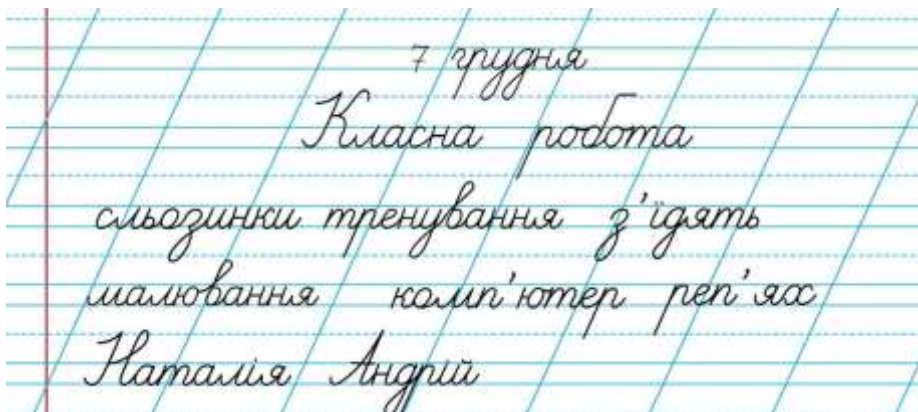 7 грудня
Класна робота
сльозинки тренування з'їдять
малювання комп'ютер реп'ях
Наталія Андрій